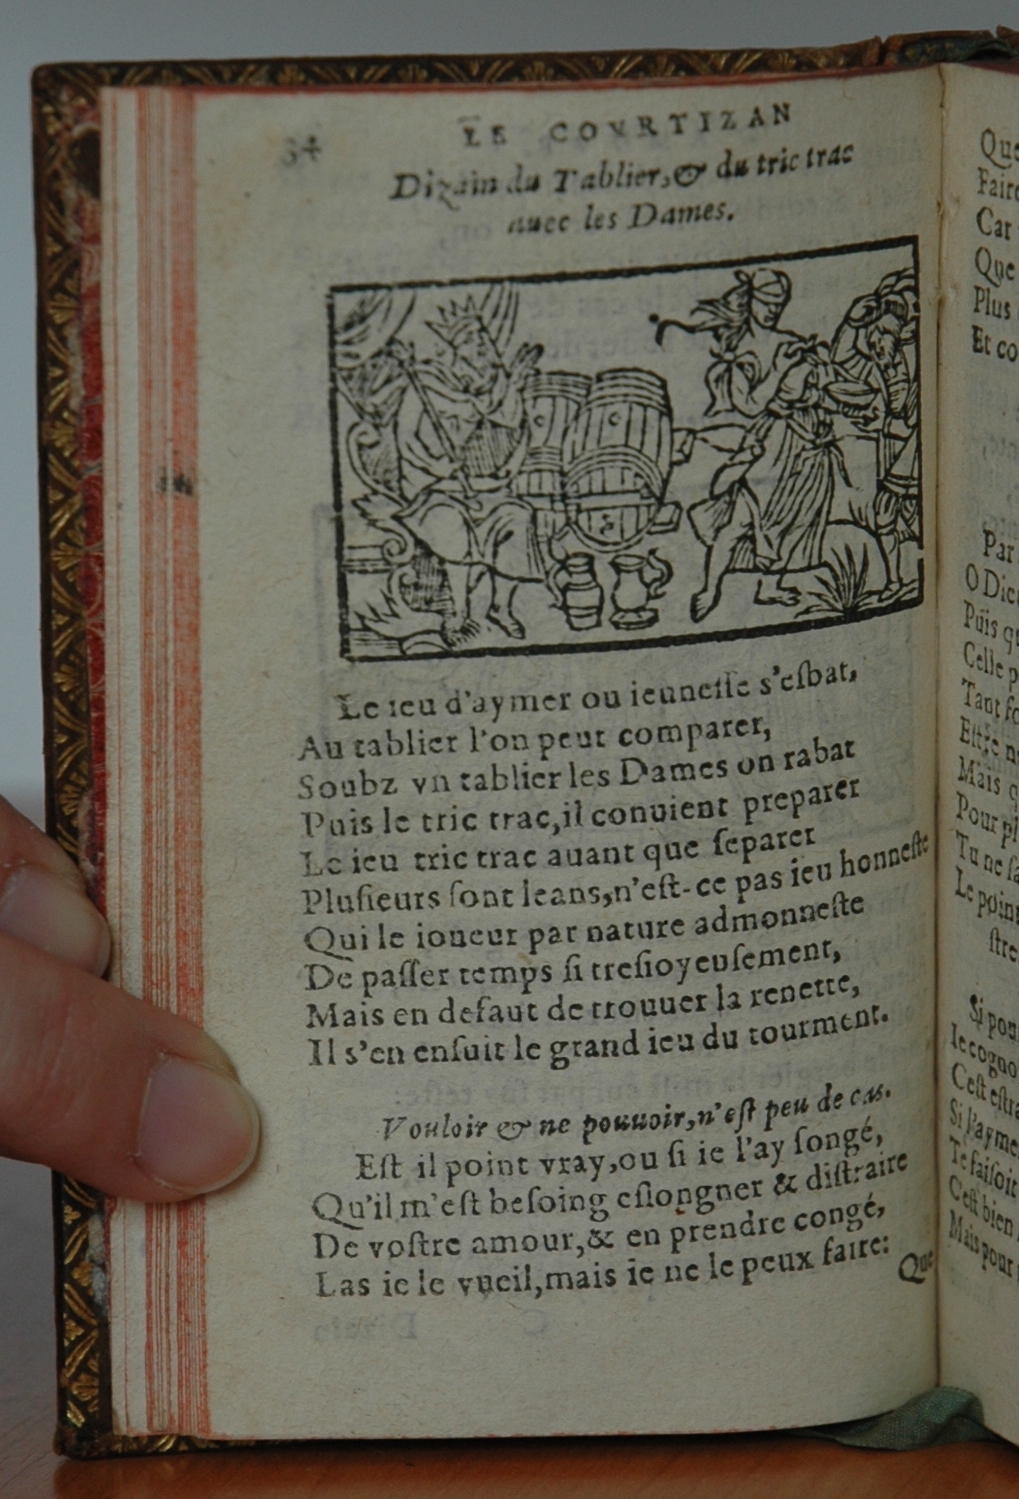 34
LE COVRTIZAN
Dizain du Tablier, & du tric trac
auec les Dames.
Le ieu d'aymer ou ieunesse s'esbat,
Au tablier l'on peut comparer,
Soubz vn tablier les Dames on rabat
Puis le tric trac, il conuient preparer
Le ieu tric trac auant que separer
Plusieurs sont leans, n'est-ce pas ieu honneste
Qui le ioueur par nature admonneste
De passer temps si tresioyeusement,
Mais en defaut de trouuer la renette,
Il s'en ensuit le grand ieu du tourment.
Vouloir & ne pouuoir, n'est peu de cas.
Est il point vray, ou si ie l'ay songé,
Qu'il m'est besoing eslongner & distraire
De vostre amour, & en prendre congé,
Las ie le vueil, mais ie ne le peux faire:
Que
Que
Faire
Car
Que
Plus
Et co
Par
O Dieu
Puis qu
Celle p
Tant
Mais q
Pour pl
Tu ne sa
Le poin
stre
Si pou
Ie cogno
C'est estra
Si l'ayme
Te faisoit
C'est bien
Mais pour